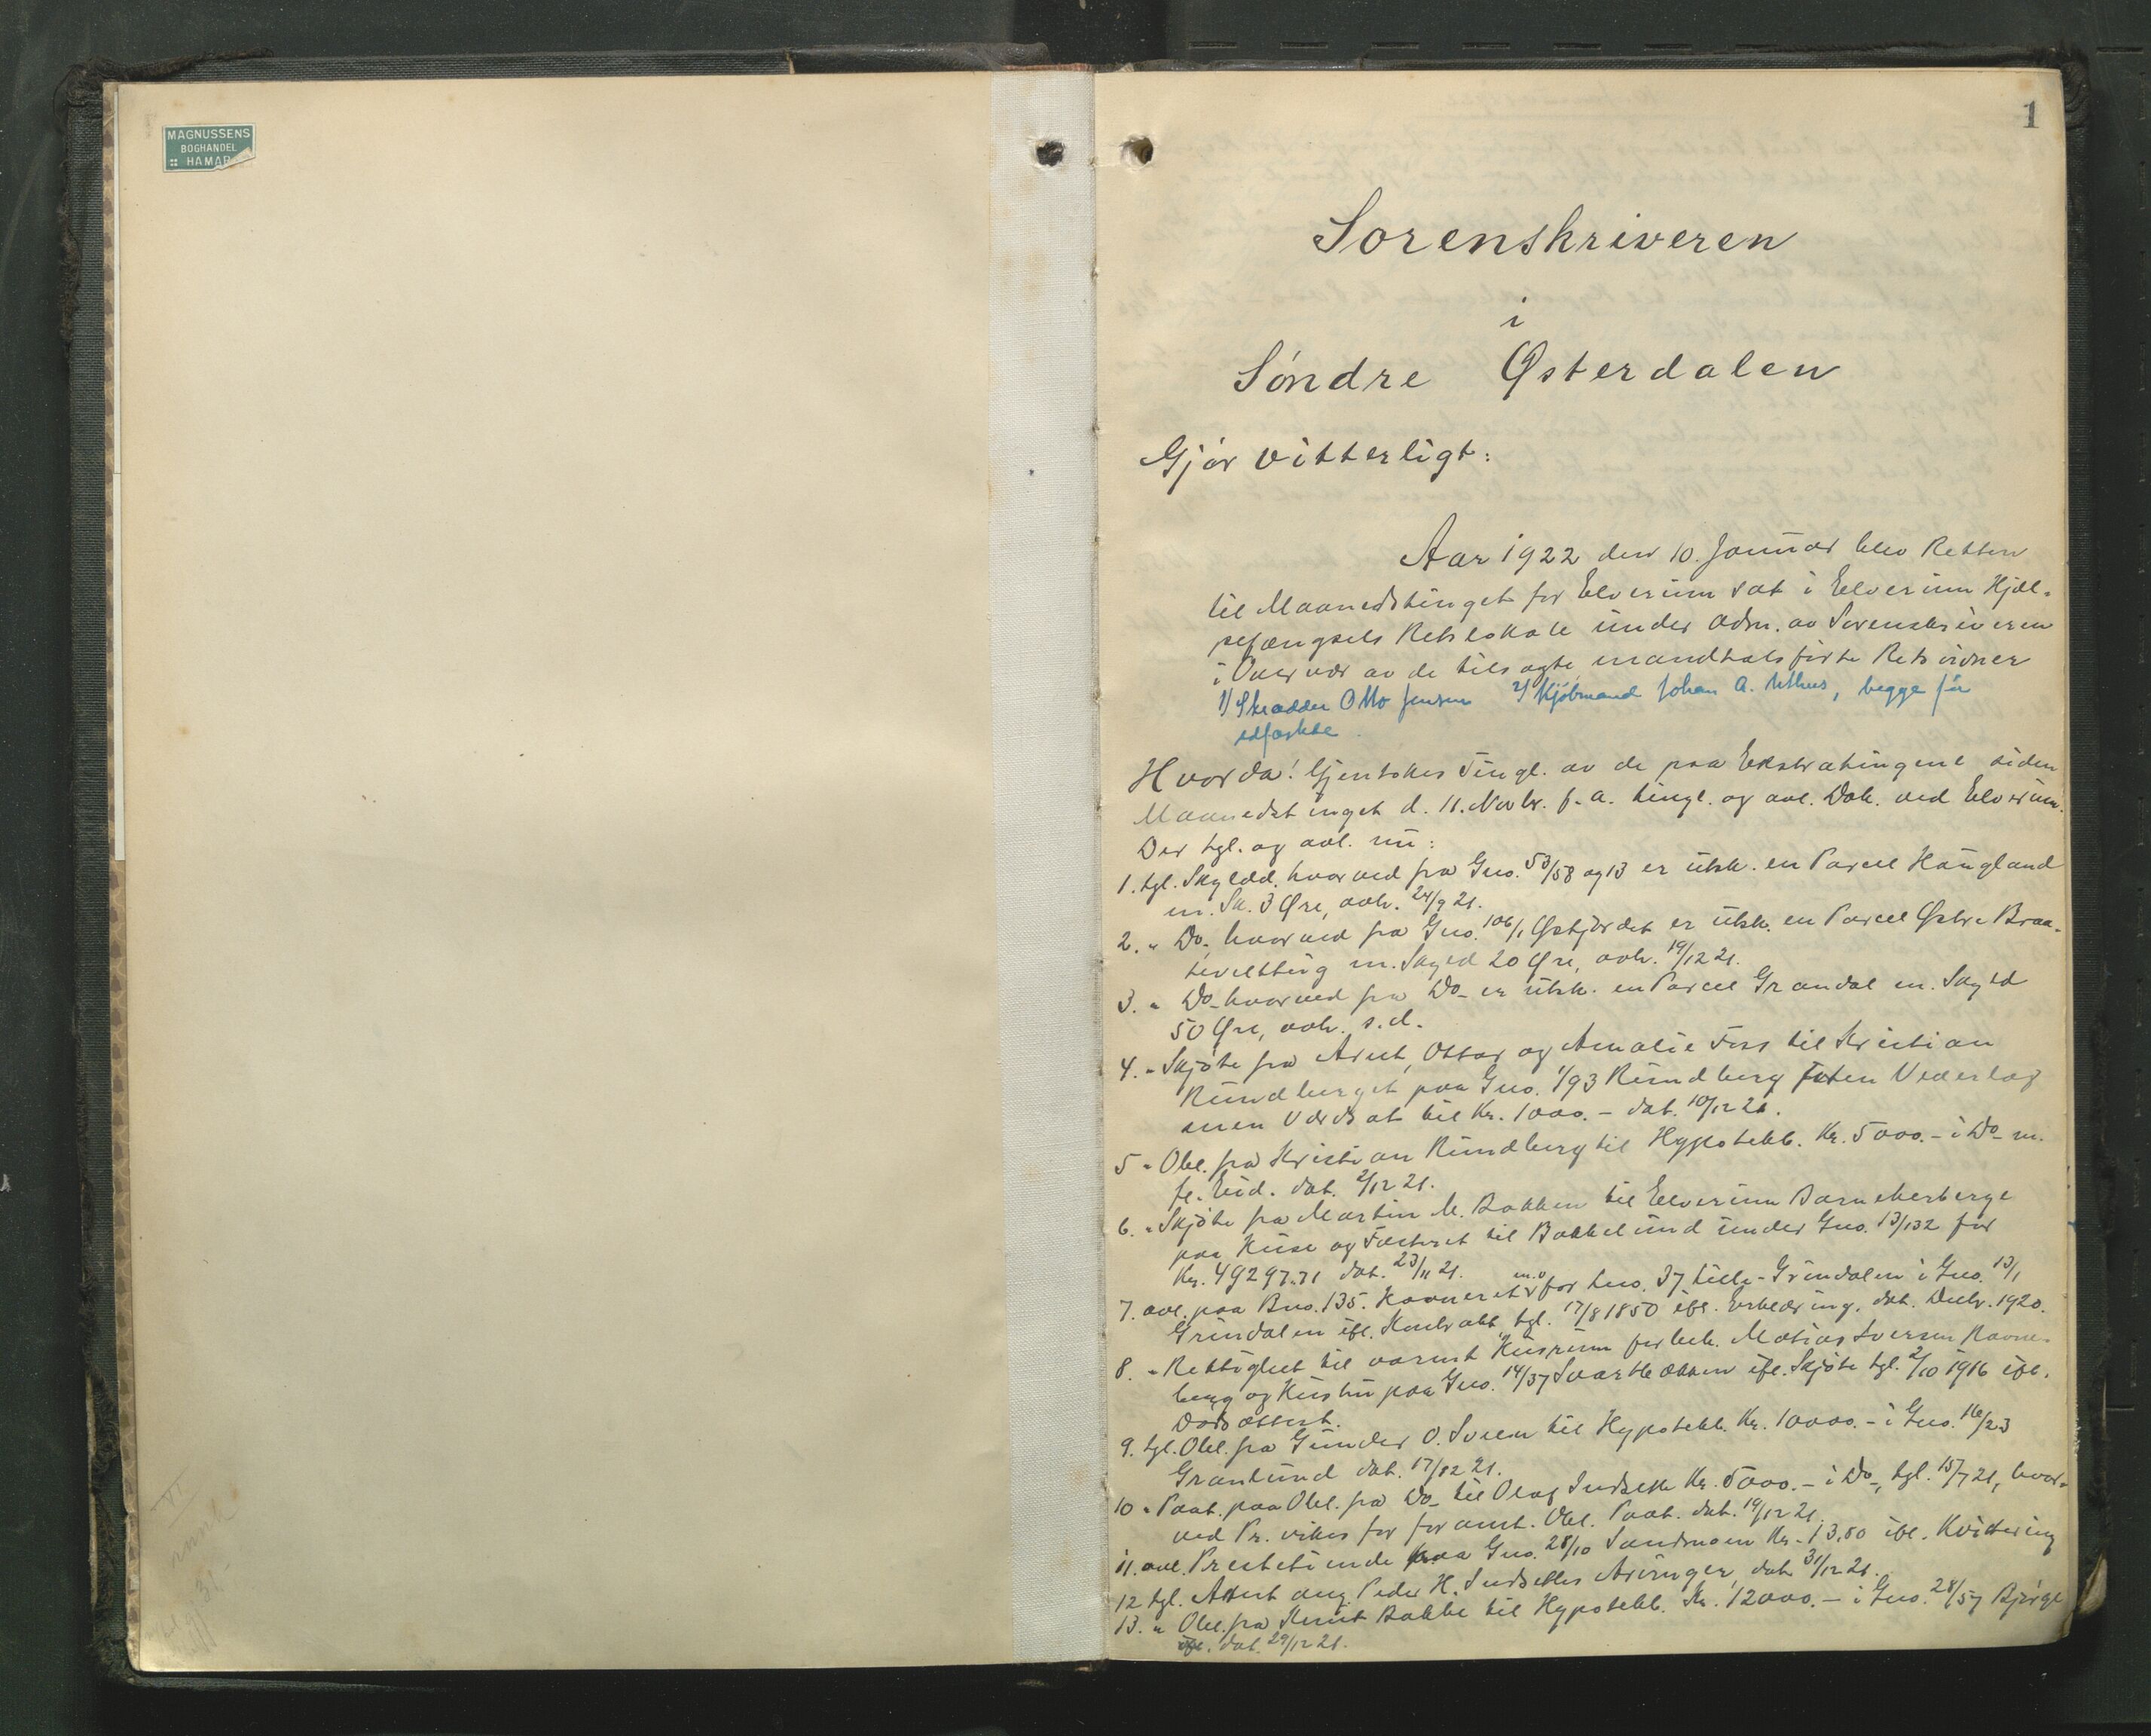 MAGNUSSENS
BOGHANDEL
:: HAMAR
1
Sorenskriveren
i
Søndre Østerdalen
Gjør vitterligt:
Aar 1922 den 10. Januar blev Retten
til Maanedstinget for Elverum sat i Elverum Hjæl-
pefængsels Retslokale under Adm. av Sorenskriveren
i Overvær av de tilsagte mandtalsførte Retsvidner
1/ Skrædder Otto Jensen 2/ Kjøbmand Johan A. Uthus, begge før
edfæstede.
Hvorda! Gjentokes Tingl. av de paa Ekstratingene siden
Maanedstinget d. 11. Novbr. f. a. tingl. og avl. Dok. ved Elverum.
Der tgl. og avl. nu:
1. tgl. Skyldd. hvorved fra Gno. 53/58 og 13 er utsk. en Parcel Haugland
m. Sk. 3 Øre, avh. 24/9 21.
2. " Do. hvorved fra Gno. 106/1 Østjordet er utsk. en Parcel Østre Braa-
teveltbrug m. Skyld 20 Øre, avh. 19/12 21.
3. " Do hvorved fra Do er utsk. en Parcel Grandal m. Skyld
50 Øre, avh. s.d.
4. " Skjøte fra Arnt, Ottar og Amalie Foss til Kristian
Rundberget paa Gno. 1/93 Rundberg uten Vederlag
men Værdsat til Kr. 1000.- dat. 10/12 21.
5 " Obl. fra Kristian Rundberg til Hypotekb. Kr. 5000.- i Do m.
fl. Eied. dat. 2/12 21.
6. " Skjøte fra Martin M. Bakken til Elverum Barneherberge
paa Huse og Fæsteret til Bakkelund under Gno. 13/132 for
Kr. 49297.71 dat. 23/11 21.
7. avl. paa Bno. 135. Havneret m.v. for Lno. 37 Lille-Grindalen i Gno. 13/1
Grindalen ifl. Kontrakt tgl. 17/8 1850 ifl. Erklæring, dat. Decbr. 1920.
8. " Rettighet til varmt Husrum for Matias Iversen Ravne-
berg og Hustru paa Gno. 14/37 Svartbækken ifl. Skjøte tgl. 2/10 1916 ifl.
Dødsattest.
9. tgl. Obl. fra Gunder O. til Hypotekb. Kr. 10000.- i Gno. 16/23
Granlund dat. 17/12 21.
10 " Paat. paa Obl. fra Do til Olaf Indset Kr. 5000.- i Do, tgl. 15/7 21, hvor-
ved Pr. vikes for foranst. Obl. Paat. dat. 19/12 21.
11. avl. Prestetiende paa Gno. 28/10 Sandmoen Kr. 13,80 ifl. Kvittering
12 tgl. Attest ang. Peder H. Indsettes Arvinger, dat. 31/12 21.
13. " Obl. fra Knut Bakke til Hypotekb. Kr. 12000.- i Gno. 28/57 Bjørge
dat. 29/12 21.